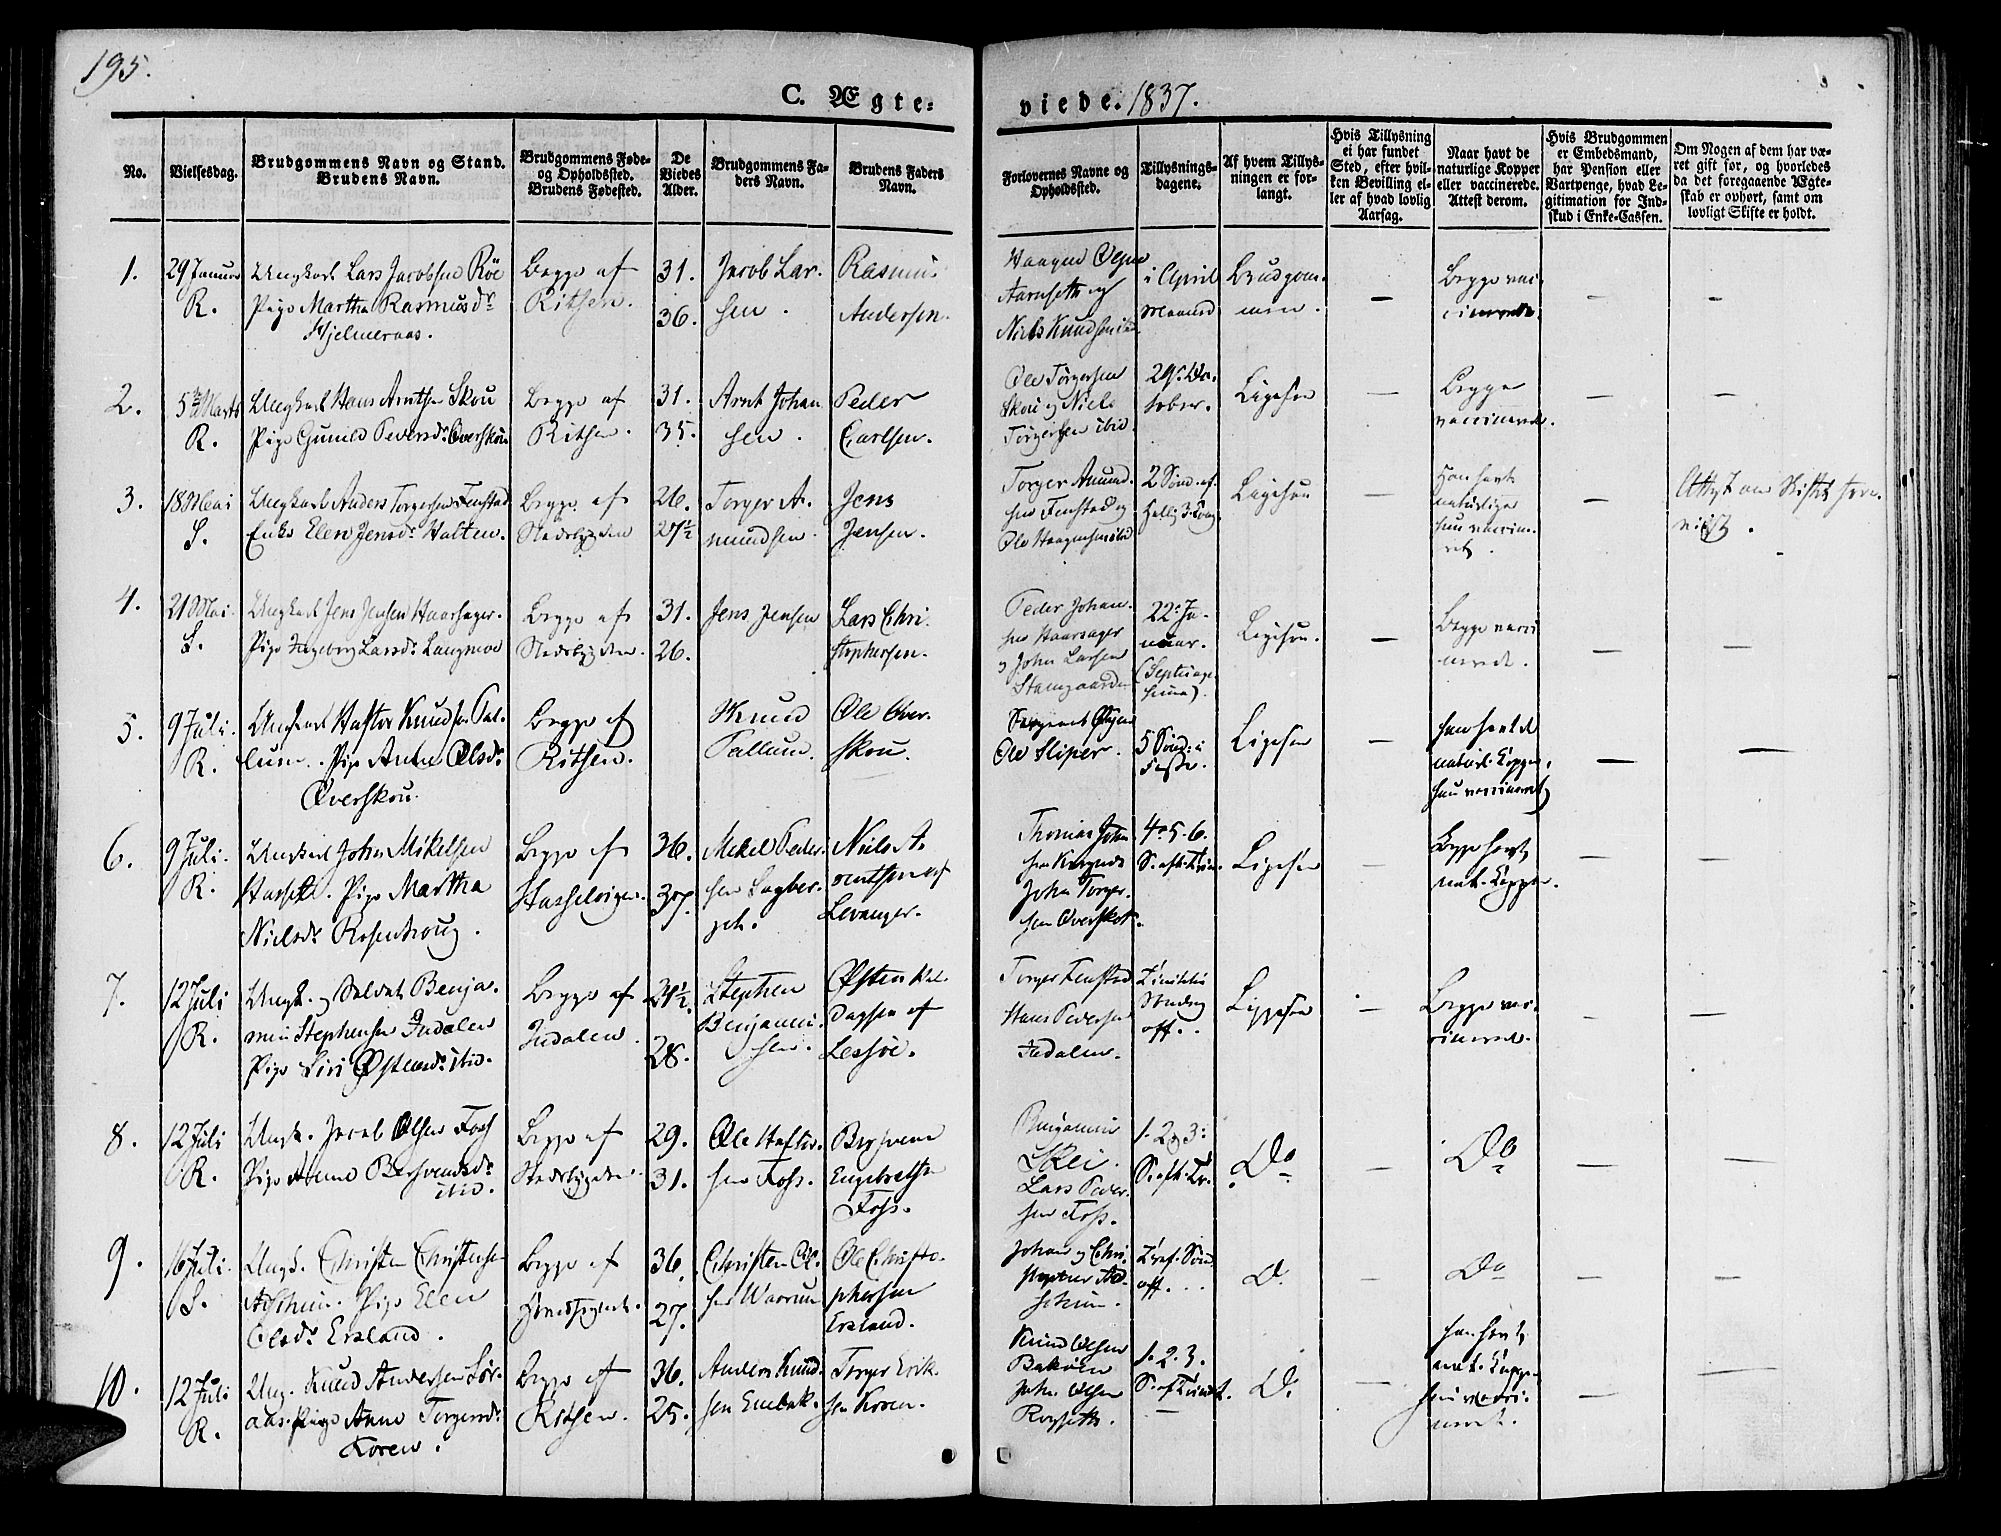 195.
C. Ægte-
viede. 1837.
No.
Vielsesdag.
Brudgommens Navn og Stand.
Brudens Navn.
Brudgommens Føde-
og Opholdssted.
Brudens Fødested.
De
Viedes
Alder.
Brudgommens Fa-
ders Navn.
Brudens Faders
Navn.
Forlovernes Navne og
Opholdssted.
Tillysnings-
dagene.
Af hvem Tillys-
ningen er for-
langt.
Hvis Tillysning
ei har fundet
Sted, efter hvil-
ken Bevilling el-
ler af hvad lovlig
Aarsag.
Naar havt de
naturlige Kopper
eller vaccinerede.
Attest derom.
Hvis Brudgommen
er Embedsmand,
har Pension eller
Vartpenge, hvad Le-
gitimation for Ind-
skud i Enke-Cassen.
Om Nogen af dem har væ-
ret gift før, og hvorledes
da det foregaaende Ægte-
skab er ophørt, samt om
lovligt Skifte er holdt.
1.
29 Januar
R.
Ungkarl Lars Jacobsen Röe
Pige Martha Rasmusdr
Hjelmeraas.
Begge af
Ritsen.
31.
36.
Jacob Lar-
sen.
Rasmus
Andersen.
Haagen
Aarnseth og
Niels Knudsen
i April
Maaned
Brudgom-
men.
—
Begge vac-
cinerede.
—
—
2.
5te Marts
R.
Ungkarl Hans Arntsen Skou
Pige Gunild Pedersdr Overskou
Begge af
Ritsen.
31.
35.
Arnt Johan
sen.
Peder
Carlsen.
Ole Torgersen
Skou og Niels
Torgersen ibid.
29de Oc-
tober.
Ligesaa
—
Begge
vaccinerede.
—
—
3.
18 Mai
S.
Ungkarl Anders Torgersen Fenstad
Enke Elen Jensdr Halten.
Begge af
Stadsbygden
26.
27½
Torger A-
mundsen.
Jens
Jensen.
Torger Amund-
sen Fenstad og
Ole Haagensen ibid
2 Sønd. af.
Hellig 3 Kong.
Ligesaa
—
Han havt
naturlige
hun vaccine-
ret.
—
Attest om Skifte fore-
viist.
4.
21 Mai
S.
Ungkarl Jens Jensen Haarsager.
Pige Ingeborg Larsdr Langmoe
Begge af
Stadsbygden.
31.
26.
Jens Jensen
Lars Chri-
stophersen.
Peder Johan-
sen Haarsager
og John Larsen
22de Ja-
nuar.
(Septuage-
sima).
Ligesaa.
—
Begge vacci
nerede.
—
—
5.
9 Juli.
R.
Ungkarl Haftor Knudsen Pal-
lum. Pige Anne Olsdr
Overskou.
Begge af
Ritsen.
Knud
Pallum.
Ole Over-
skou.
Ole Sliper.
5 Sønd. i
Faste.
Ligesaa
—
han havt de
naturl. Kopper,
hun vaccineret
—
—
6.
9 Juli.
R.
Ungkarl John Mikelsen
Hasseth. Pige Martha
Nielsdr Rosentroug.
Begge af
Hasselvigen.
36.
37.
Mikel Peder-
sen Sagber-
get.
Niels A-
rentsen af
Levanger.
Thomas John
sen
John Torger-
sen Overskot.
4de 5. 6.
S. eft. Trin.
Ligesaa
—
Begge havt
nat. Kopper.
—
—
7.
12 Juli
R.
Ungk. og Soldat Benja-
min Stephensen Indalen
Pige Siri Østensdr ibid.
Begge af
Indalen.
24½.
28.
Stephen
Benjamin-
sen.
Østen Hal-
dagsen af
Lessøe.
Torger Fenstad
Hans Pedersen
Indalen.
Trinitatis
Søndag
off..
Ligesaa
—
Begge vac-
cinerede.
—
—
8.
12 Juli
R.
Ungk. Jacob Olsen Foss
Pige Anne Bersvendsdr
ibid.
Begge af
Stadsbygden.
29.
31.
Ole Haftor-
sen Foss.
Bersvend
Engebretse
Foss.
Benjamin
Skei.
Lars Peder-
sen Foss.
1. 2 og 3:
S. eft. Tr.
Do
—
Do
—
—
9.
16 Juli.
S.
Ungk. Christen Christense
Askhim. Pige Elen
Olsdr Ersland.
Begge af
36.
27.
Christen Ol-
sen
Ole Christo-
phersen
Ersland.
Johan og Chri-
stopher As-
khim.
off...
D.
—
Do
—
—
10.
12 Juli
R.
Ung. Knud Andersen Sør-
aas. Pige Anne Torgersdr
Koren.
Begge af
Ritsen.
36.
25.
Anders Knud-
sen Embak.
Torger Erik-
sen Koren.
Knud Olsen
Bakøen
John Olsen
Rogseth.
1. 2. 3.
S. ef Trinit.
D.
—
han havt
nat. Kopper
hun vacci-
neret.
—
—